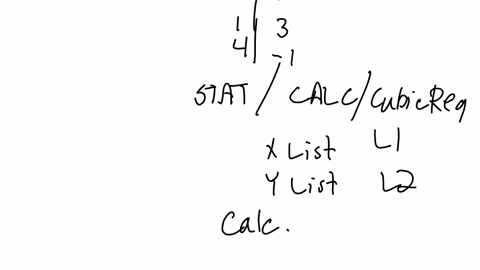 1 | 3
4 | -1
STAT / CALC/CubicReg
X List L1
Y List L2
Calc.